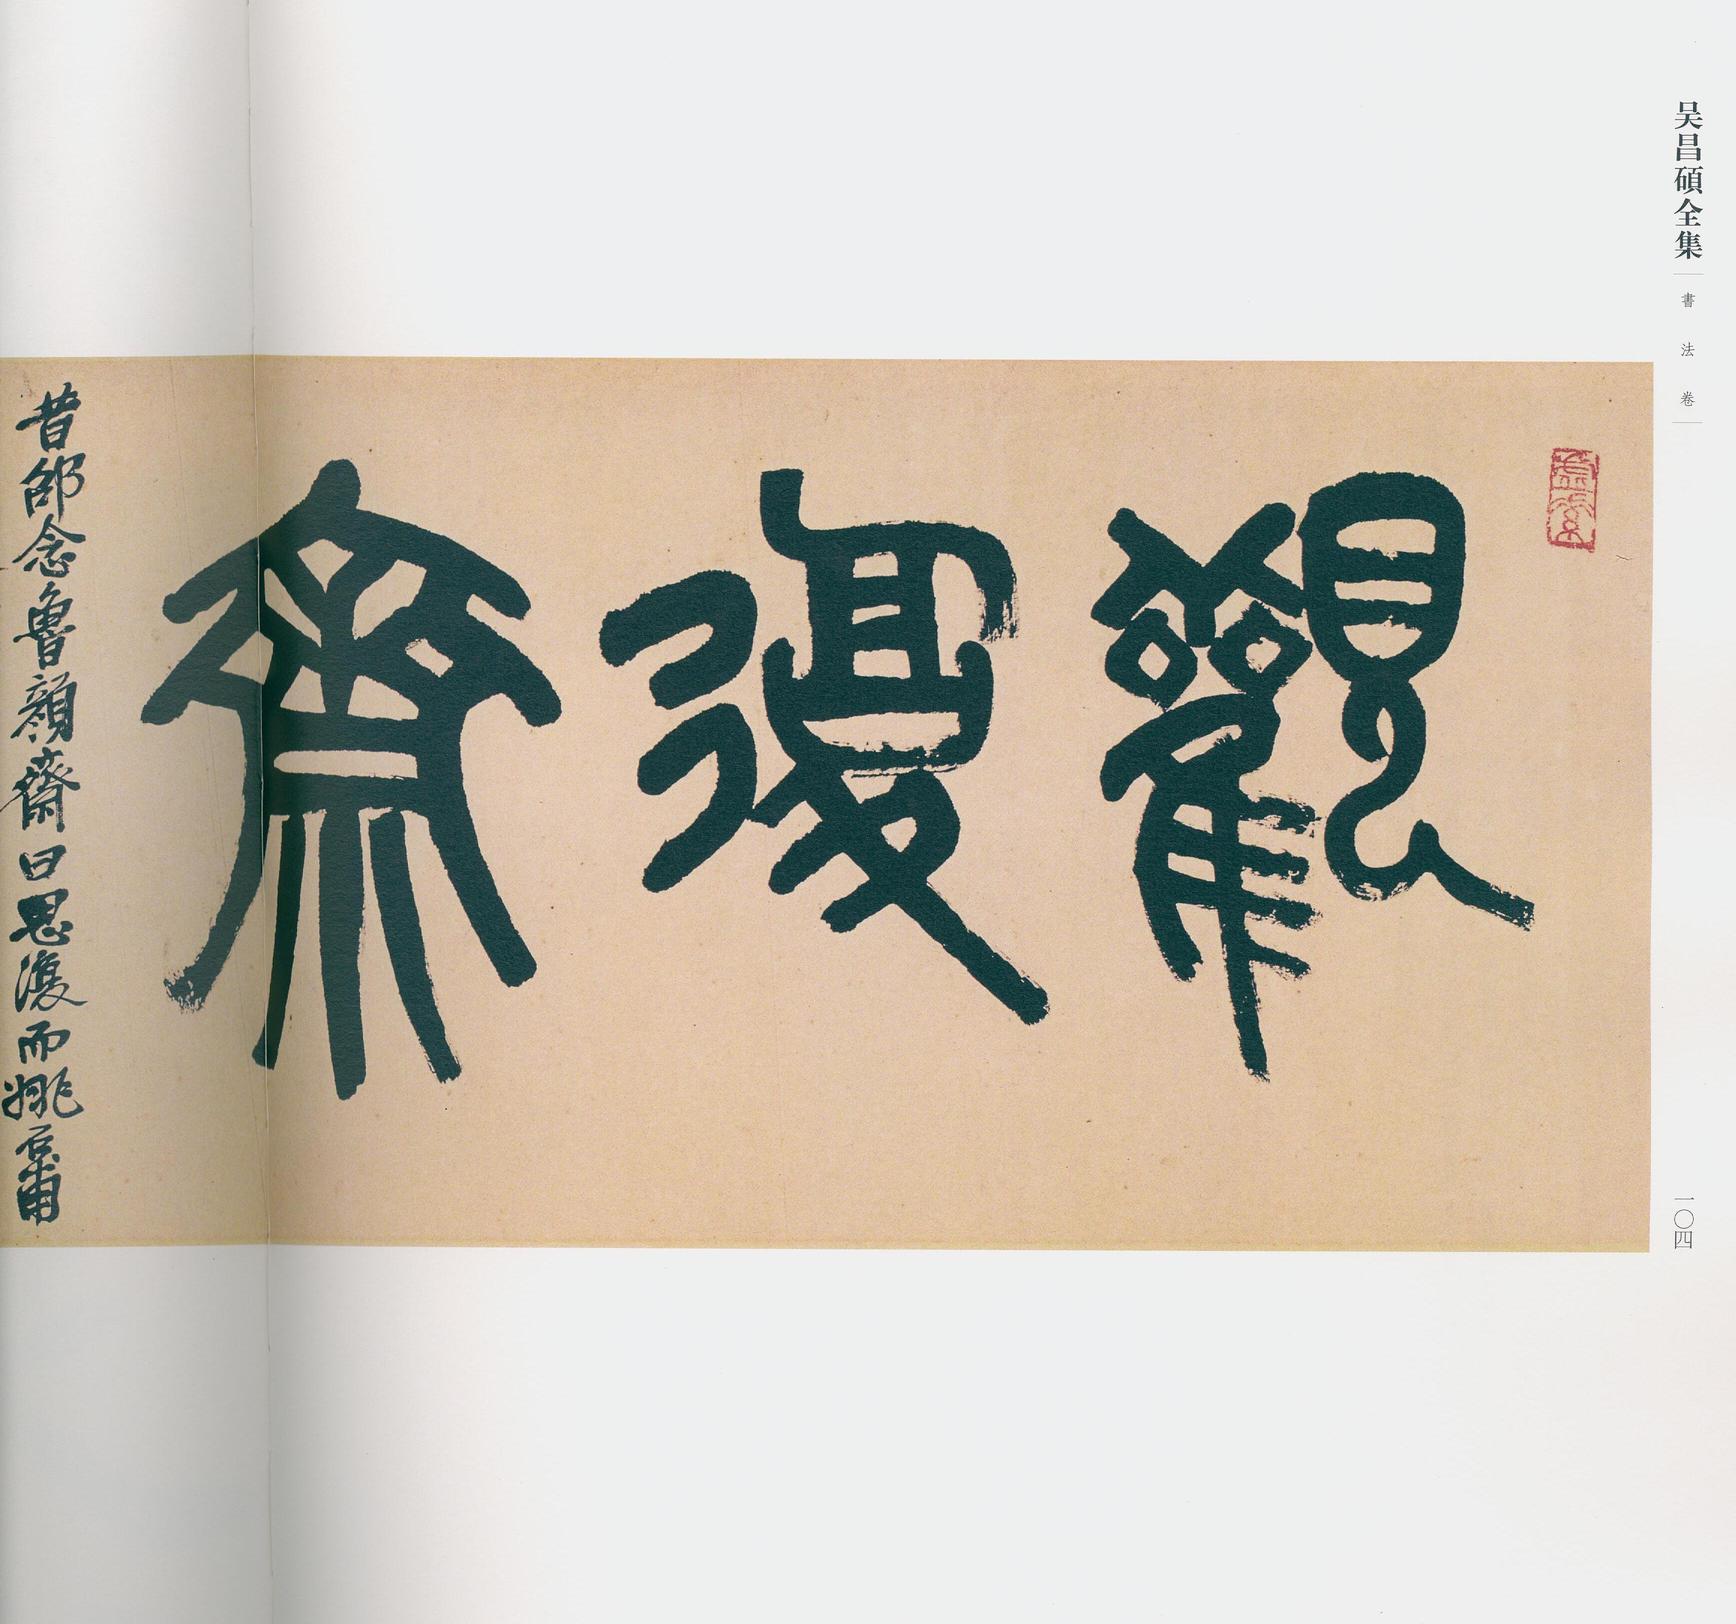 吴昌碩全集
書法卷
一〇四
觀復齋
昔邵念魯顔齋曰思復而姚